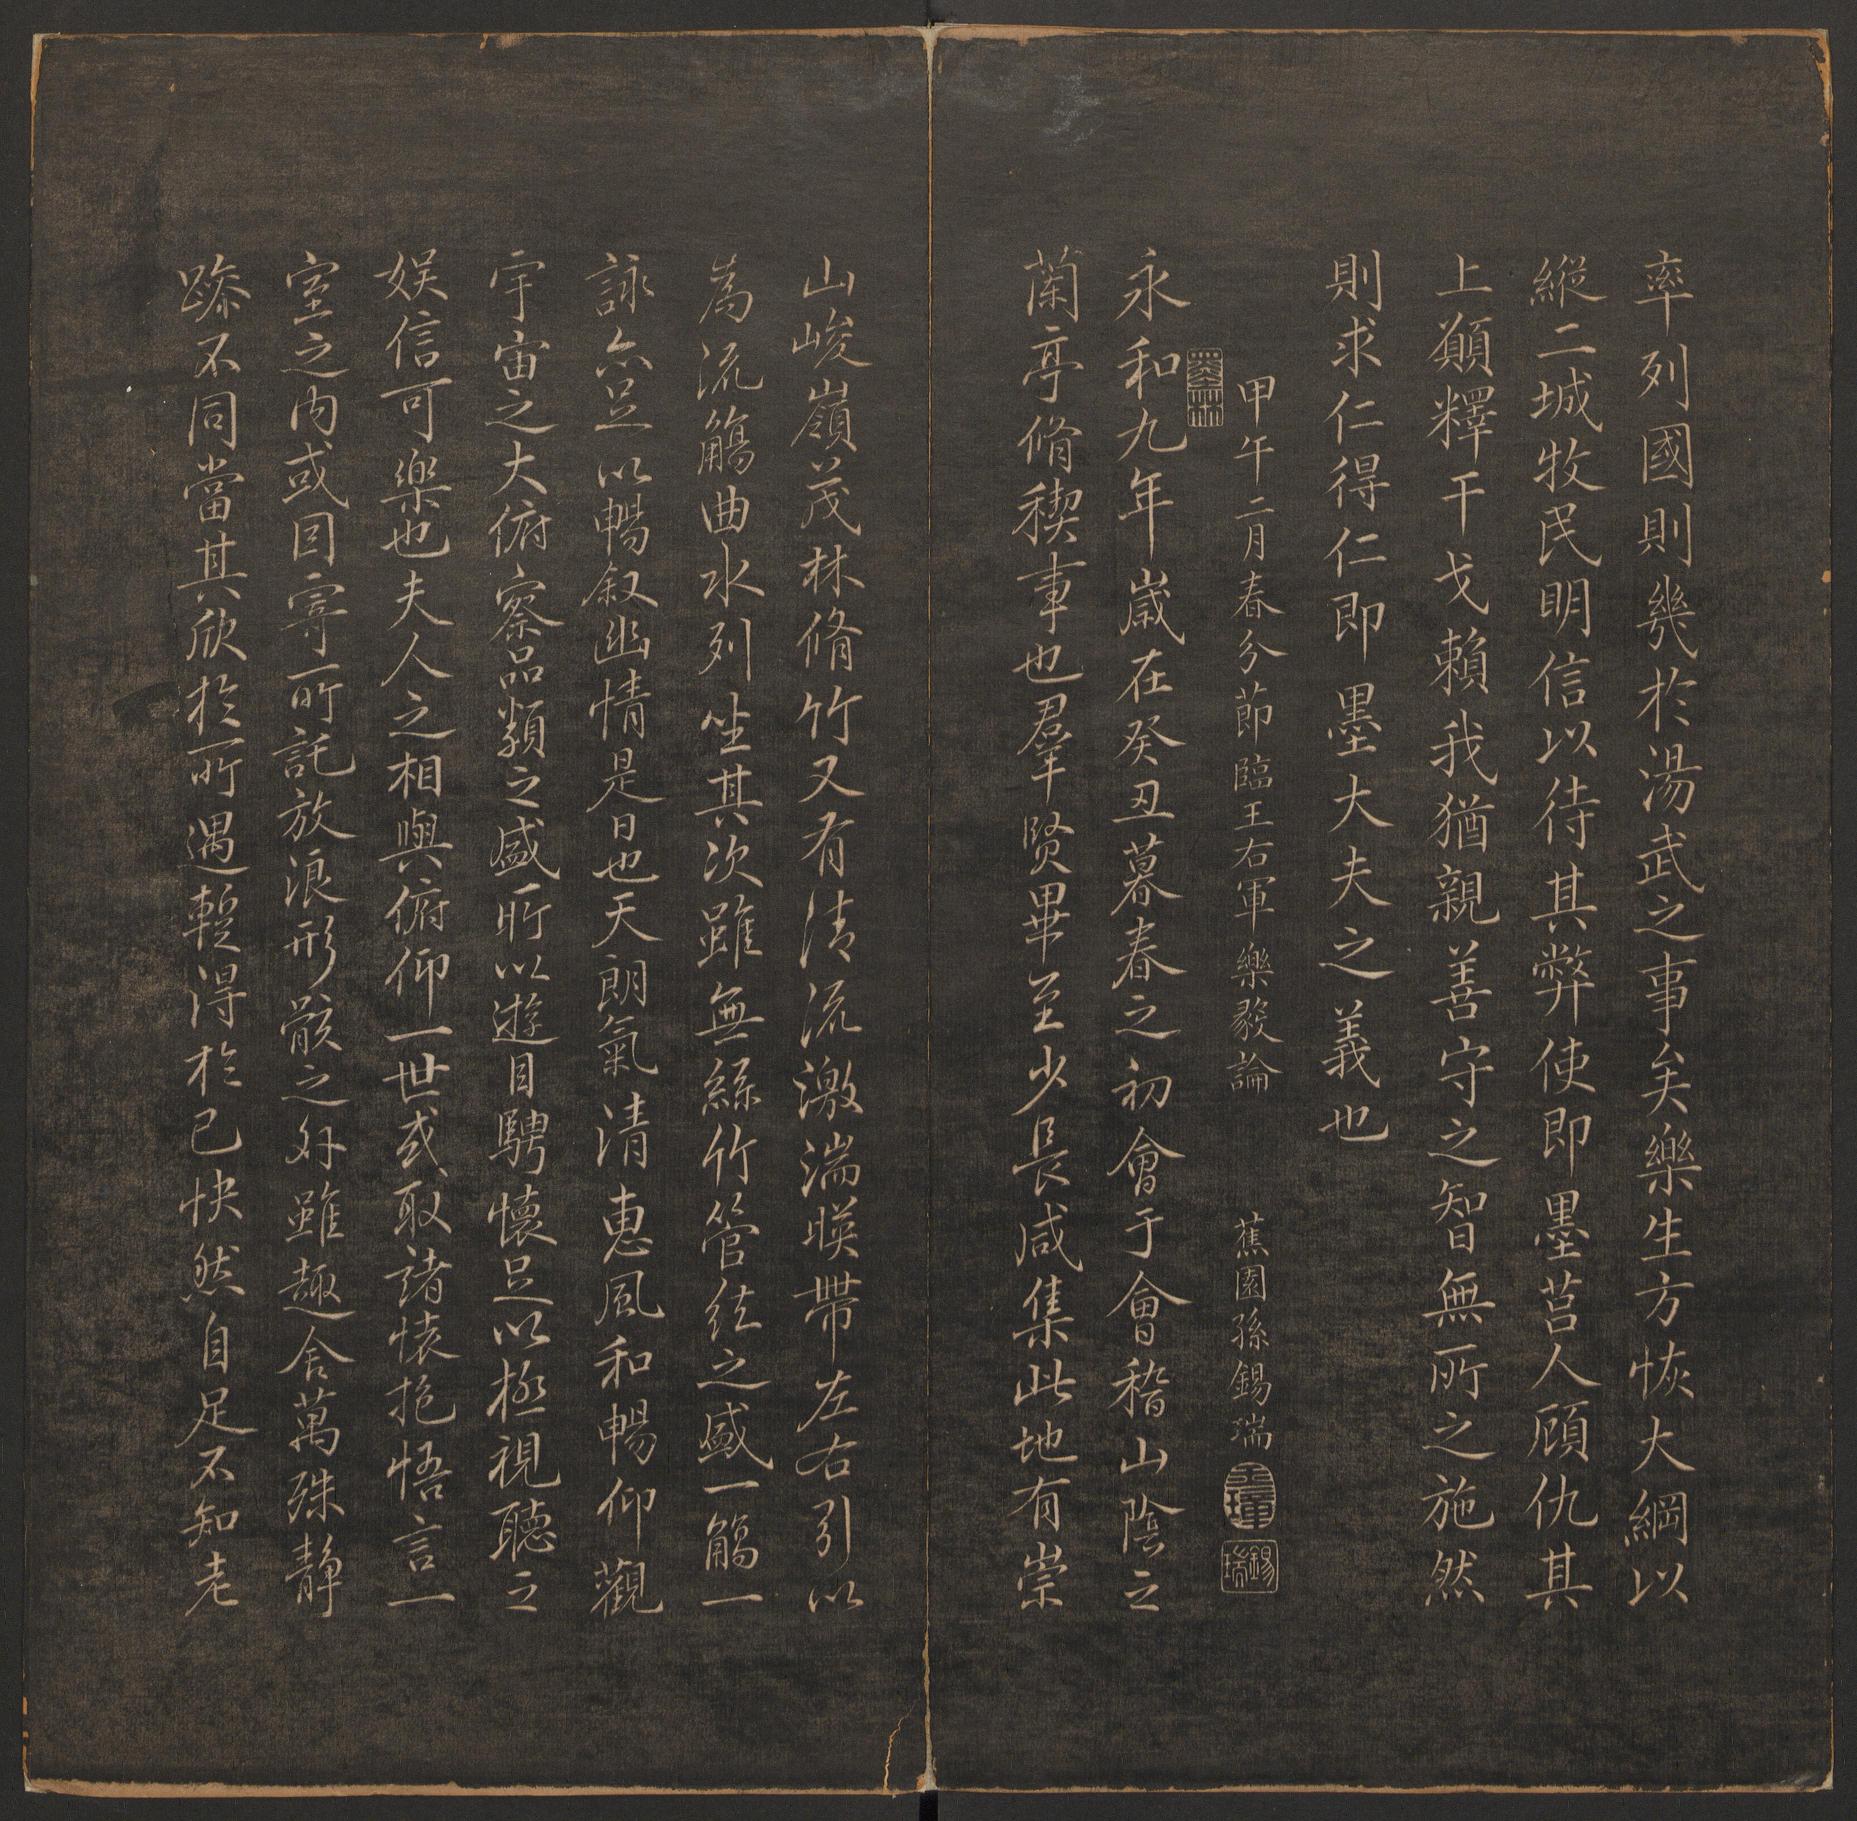 率列國則幾於湯武之事矣樂生方恢大綱以
縱二城牧民明信以待其弊使即墨莒人顧仇其
上願釋干戈賴我猶親善守之智無所之施然
則求仁得仁仁即墨大夫之義也
甲午二月春分節臨王右軍樂毅論 蕉園孫錫瑞
錫瑞
墨林
永和九年歲在癸丑暮春之初會于會稽山陰之
蘭亭脩稧事也羣賢畢至少長咸集此地有崇
山峻嶺茂林脩竹又有清流激湍暎帶左右引以
為流觴曲水列坐其次雖無絲竹管弦之盛一觴一
詠亦足以暢叙幽情是日也天朗氣清惠風和暢仰觀
宇宙之大俯察品類之盛所以遊目騁懷足以極視聽之
娛信可樂也夫人之相與俯仰一世或取諸懐抱悟言一
室之内或因寄所託放浪形骸之外雖趣舍萬殊静
躁不同當其欣於所遇蹔得於己快然自足不知老